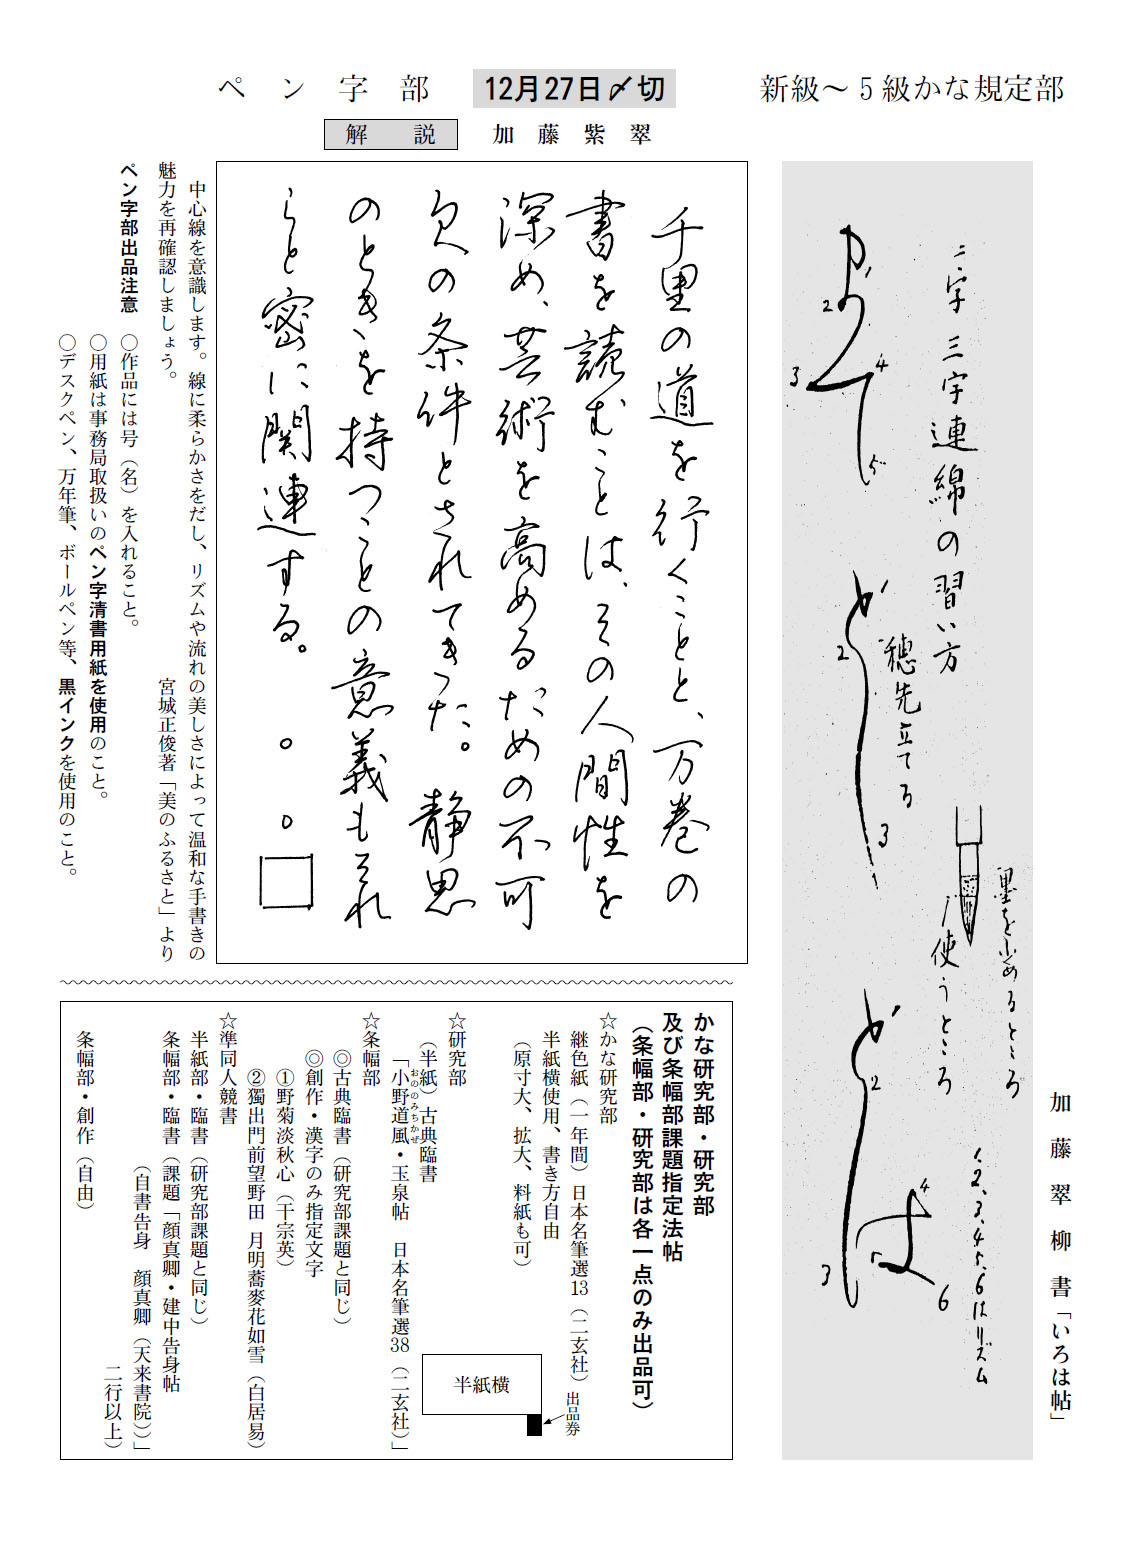 新級～5級かな規定部
12月27日〆切
ペン字部
解説　加藤紫翠
二字三字連綿の習い方
穂先立てる
墨を止めるところ
使うところ
1.2.3.4.5.6はリズム
1
2
3
4
5
1
2
3
1
2
3
4
5
6
加藤翠柳書「いろは帖」
千里の道を行くことと、万巻の
書を読むことは、その人間性を
深め、芸術を高めるための不可
欠の条件とされてきた。静思
のときを持つことの意義もそれ
らと密に関連する。
中心線を意識します。線に柔らかさをだし、リズムや流れの美しさによって温和な手書きの
魅力を再確認しましょう。
宮城正俊著「美のふるさと」より
ペン字部出品注意
〇作品には号（名）を入れること。
〇用紙は事務局取扱いのペン字清書用紙を使用のこと。
〇デスクペン、万年筆、ボールペン等、黒インクを使用のこと。
かな研究部・研究部
及び条幅部課題指定法帖
（条幅部・研究部は各一点のみ出品可）
☆かな研究部
継色紙（一年間）日本名筆選13（二玄社）
半紙横使用、書き方自由
（原寸大、拡大、料紙も可）
半紙横
出品券
☆研究部
（半紙）古典臨書
「小野道風・玉泉帖　日本名筆選38（二玄社）」
おののみちかぜ
☆条幅部
◎古典臨書（研究部課題と同じ）
◎創作・漢字のみ指定文字
①野菊淡秋心（干宗英）
②獨出門前望野田 月明蕎麥花如雪（白居易）
☆準同人競書
半紙部・臨書（研究部課題と同じ）
条幅部・臨書（課題「顔真卿・建中告身帖
（自書告身　顔真卿（天来書院））」
二行以上）
条幅部・創作（自由）